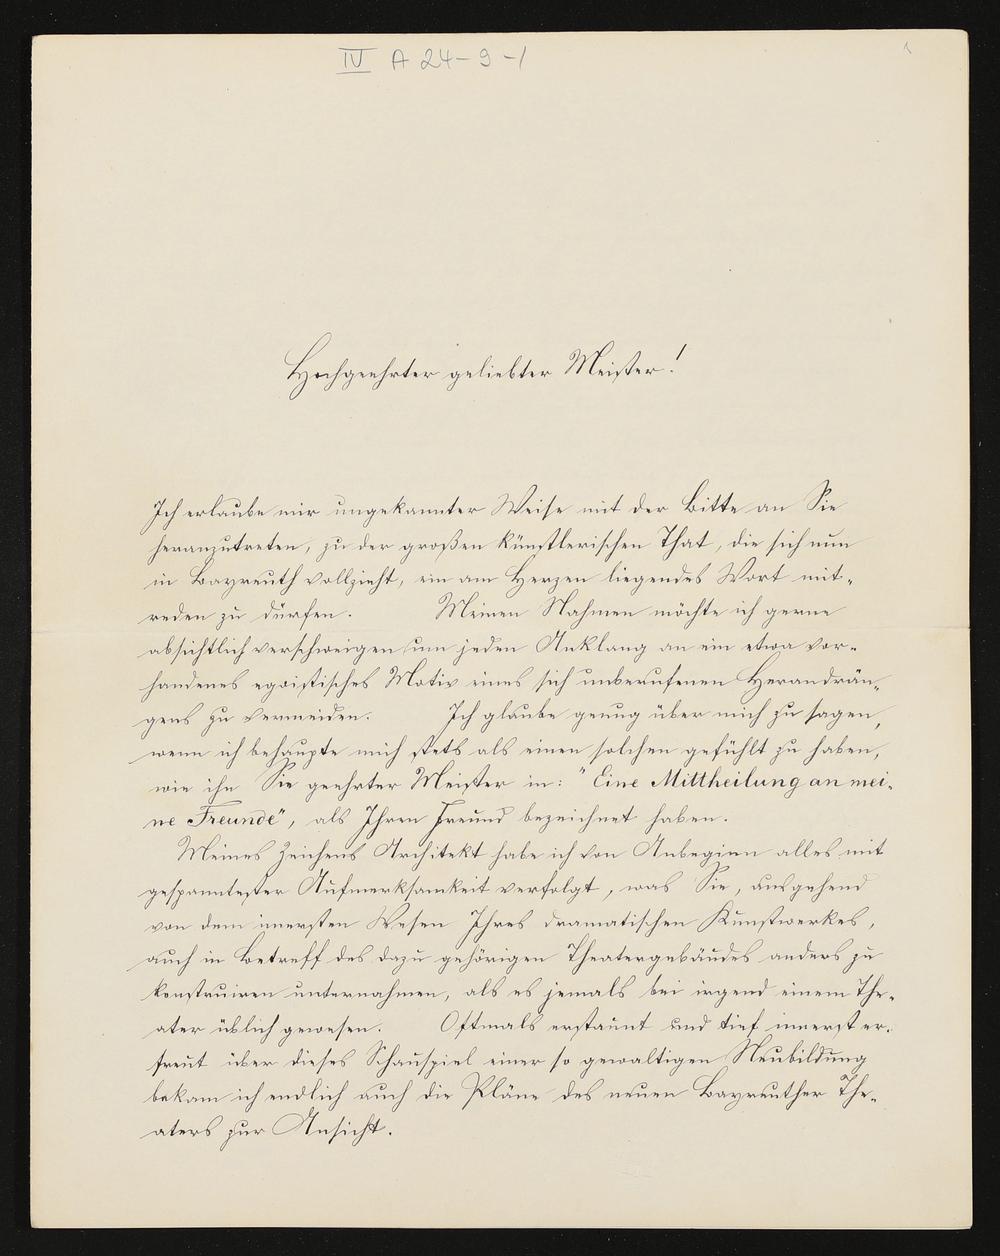 IV A 24-9-1
Hochgeehrter geliebter Meister!
Ich erlaube mir ungekannter Weise mit der Bitte an Sie
heranzutreten, zu der großen künstlerischen That, die sich nun
in Bayreuth vollzieht, ein am Herzen liegendes Wort mit-
reden zu dürfen. Meinen Nahmen möchte ich gerne
absichtlich verschweigen um jeden Anklang an ein etwa vor-
handenes egoistisches Motiv eines sich unberufenen Herandrän-
gens zu vermeiden. Ich glaube genug über mich zu sagen,
wenn ich behaupte mich stets als einen solchen gefühlt zu haben,
wie ihn Sie geehrter Meister in: "Eine Mittheilung an mei-
ne Freunde", als Ihren Freund bezeichnet haben.
Meines Zeichens Architekt habe ich von Anbeginn alles mit
gespanntester Aufmerksamkeit verfolgt, was Sie, ausgehend
von dem innersten Wesen Ihres dramatischen Kunstwerkes,
auch in Betreff des dazu gehörigen Theatergebäudes anders zu
konstruiren unternahmen, als es jemals bei irgend einem The-
ater üblich gewesen. Oftmals erstaunt und tief innerst er-
freut über dieses Schauspiel einer so gewaltigen Neubildung
bekam ich endlich auch die Pläne des neuen Bayreuther The-
aters zur Ansicht.